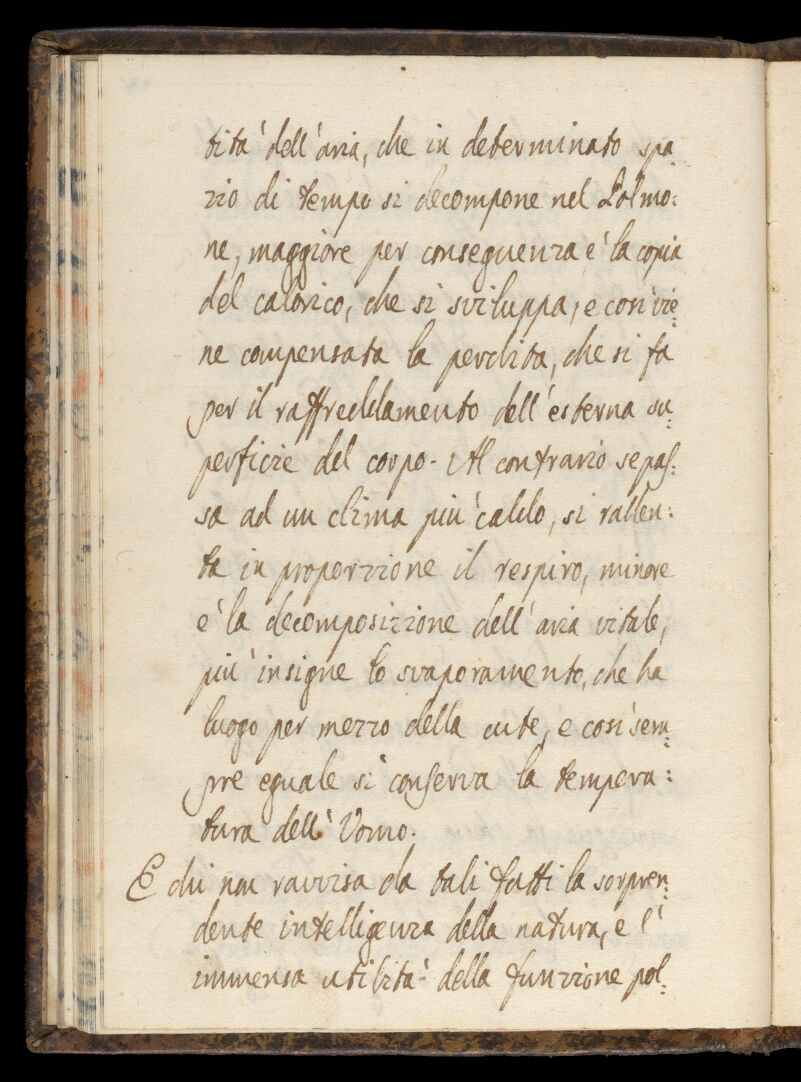 tità dell'aria, che in determinato spa
zio di tempo si decompone nel Polmo:
ne, maggiore per conseguenza è la copia
del calorico, che si sviluppa, e così vie:
ne compensata la perdita, che si fa
per il raffreddamento dell'esterna su:
perficie del corpo. Al contrario se pas:
sa ad un clima più caldo, si rallen:
ta in proporzione il respiro, minore
è la decomposizione dell'aria vitale,
più insigne lo svaporamento, che ha
luogo per mezzo della cute, e così sem:
pre eguale si conserva la tempera:
tura dell'Uomo.
E chi non ravvisa da tali fatti la sorpren:
dente intelligenza della natura, e l'
immensa utilità della funzione pol: